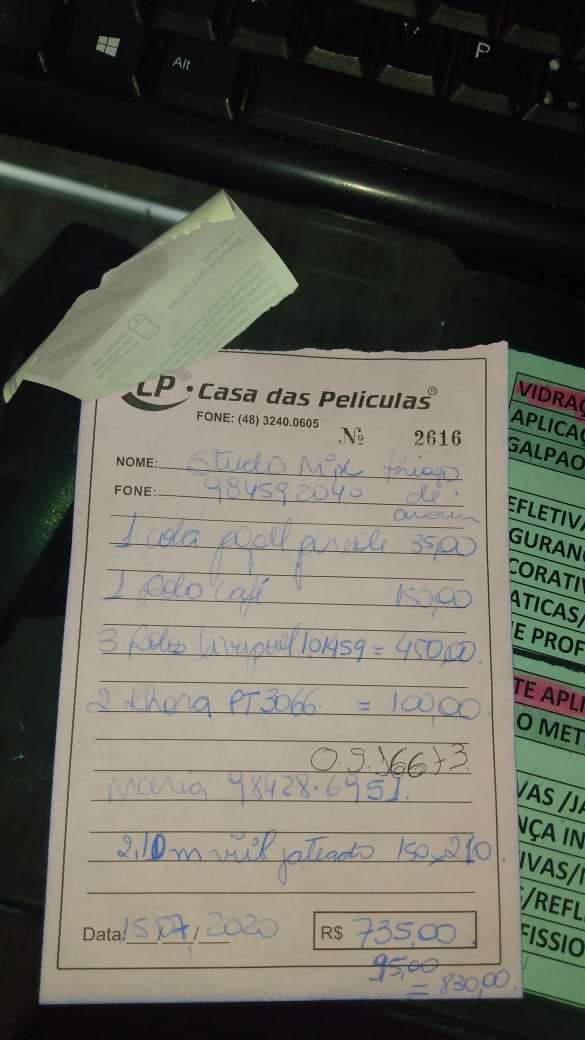 Alt
V
P
CP · Casa das Películas®
FONE: (48) 3240.0605
Nº 2616
NOME: Studo Mix thiago
FONE: 984592040 de
amorim
1 cola papel parede 35,00
1 Rolo Café 150,00
3 Rolos 101459 = 450,00
2 PT3066 = 100,00
O.S. 16673
Maria 98428.6951.
2,10m vinil jateado 150x210
Data: 15/07/2020 R$ 735,00
95,00
= 830,00
VIDRAÇ
APLICAÇ
GALPAO
EFLETIV
GURAN
CORATIV
ATICAS/
E PROF
TE APLI
O MET
VAS /JA
NÇA IN
IVAS/
S/REFL
FISSIO